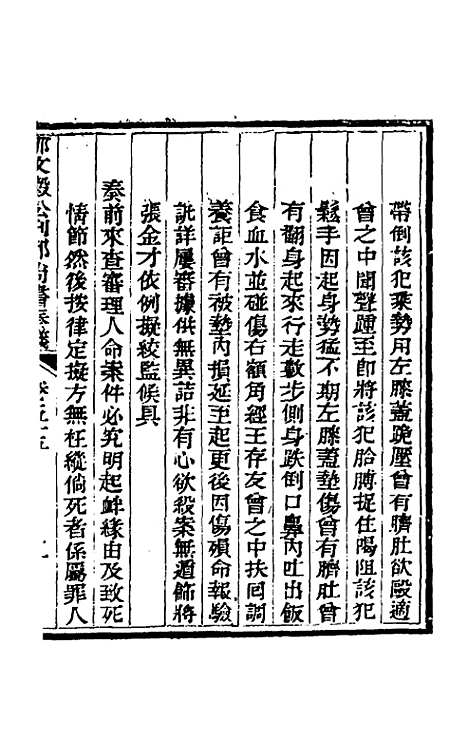 帶倒該犯乘勢用左膝蓋跪壓曾有臍肚欲毆適
曾之中聞聲踵至卽將該犯胳膊捉住陽阻該犯
鬆手因起身勢猛不期左膝蓋墊傷曾有臍肚曾
有翻身起來行走數步側身跌倒口鼻內吐出飯
食血水並碰傷右額角經王存友曾之中扶囘調
養詎曾有被墊內損延至起更後因傷殞命報驗
訊詳屢審據供無異詰非有心欲殺案無遁飾將
張金才依例擬絞監候具
奏前來查審理人命案件必究明起衅緣由及致死
情節然後按律定擬方無枉縱倘死者係屬罪人
文毅公 奏議 卷之五十五